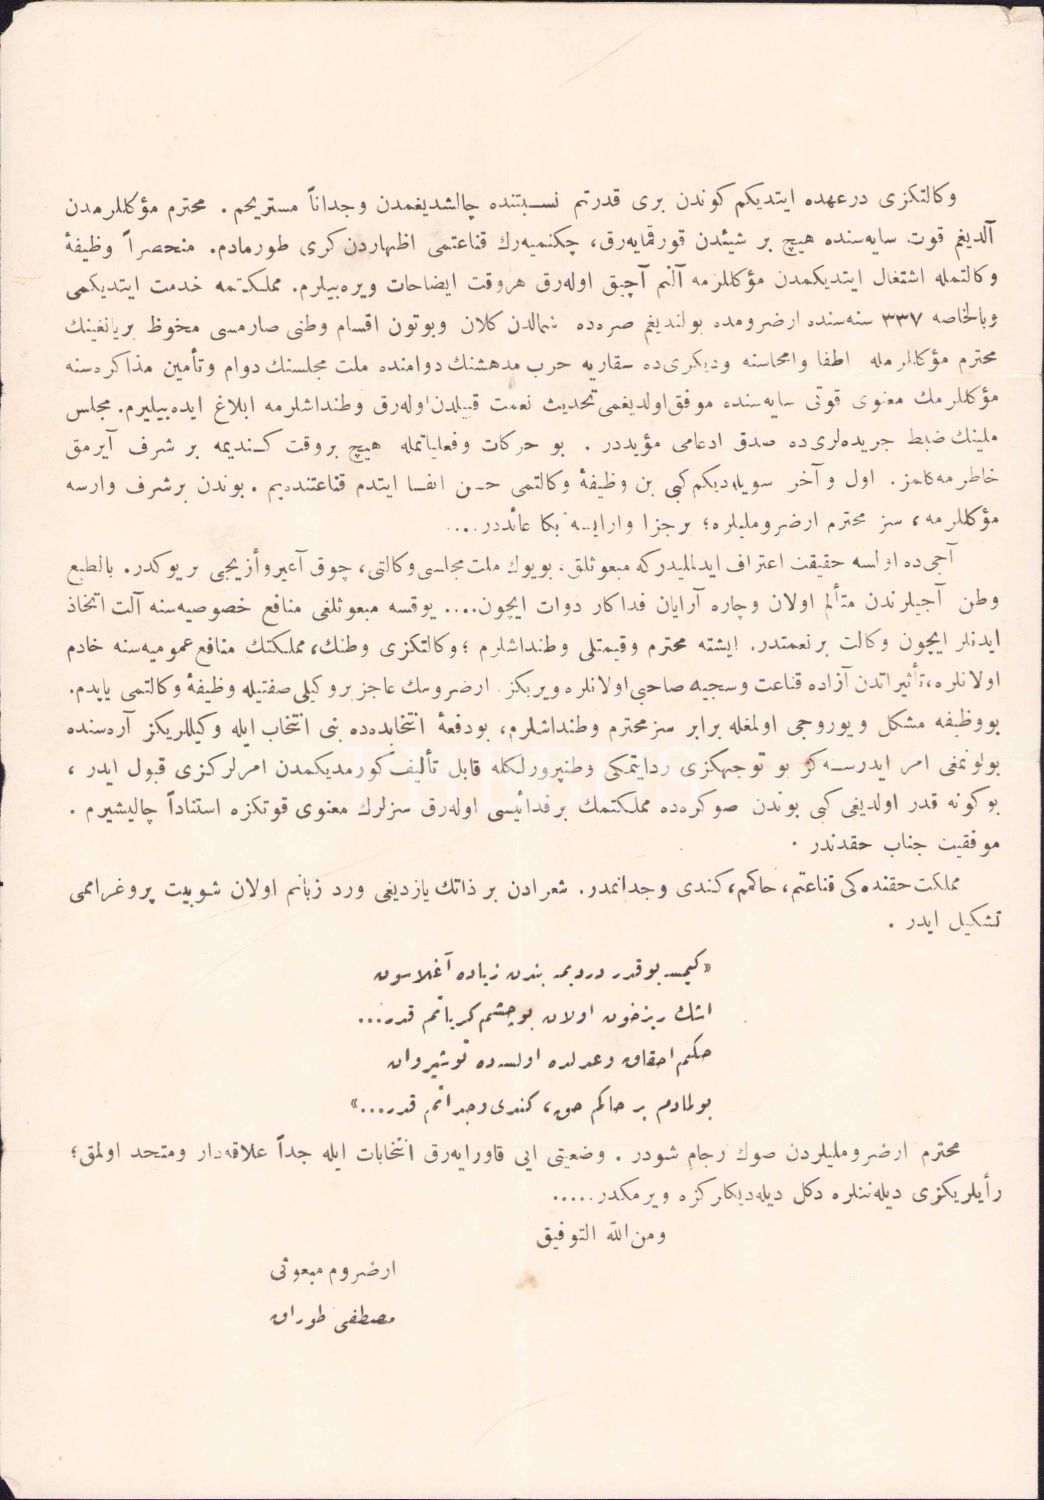 وكالتكزى درعهده ايتديكم كوندن برى قدرتم نسبتنده چالشديغمدن وجداناً مستريحم . محترم مؤكللرمدن
آلديغم قوت سايه‌سنده هيچ بر شيئدن قورقمايه‌رق، چكنميه‌رك قناعتمى اظهاردن كرى طورمادم. منحصراً وظيفهٔ
وكالتمله اشتغال ايتديكمدن مؤكللرمه آلنم آچيق اوله‌رق هروقت ايضاحات ويره‌بيلرم. مملكتمه خدمت ايتديكمى
وبالخاصه ٣٣٧ سنه‌سنده ارضرومده بولنديغم صره‌ده شمالدن كلان وبوتون اقسام وطنى صارمسى محظوظ بريانغينك
محترم مؤكللرمله اطفا وامحاسنه وديكرى‌ده سقاريه حرب مدهشنك دوامنده ملت مجلسنك دوام وتأمين مذاكره‌سنه
مؤكللرمك معنوى قوتى سايه‌سنده موفق اولديغمى تحديث نعمت قبيلدن اوله‌رق وطنداشلرمه ابلاغ ايده‌بيليرم. مجلس
ملينك ضبط جريده‌لرى‌ده صدق ادعامى مؤيددر . بو حركات وفعلياتمله هيچ بروقت كنديمه بر شرف آيرمق
خاطرمه كلمز. اول وآخر سويله‌ديكم كبى بن وظيفهٔ وكالتمى حسن ايفا ايتدم قناعتنده‌يم . بوندن برشرف وارسه
مؤكللرمه، سز محترم ارضروملیلره؛ برجزا وارايسه بكا عائددر....
آجى‌ده اولسه حقيقت اعتراف ايدلمليدركه مبعوثلق، بويوك ملت مجلسى وكالتى، چوق آغير وأزيجى بر يوكدر. بالطبع
وطن آجيلرندن متألم اولان وچاره آرايان فداكار ذوات ايچون.... يوقسه مبعوثلغى منافع خصوصيه‌سنه آلت اتخاذ
ايدنلر ايچون وكالت برنعمتدر. ايشته محترم وقيمتلى وطنداشلرم ؛ وكالتكزى وطنك، مملكتك منافع عموميه‌سنه خادم
اولانلره، تأثيراتدن آزاده قناعت وسجيه صاحبى اولانلره ويريكز. ارضرومك عاجز بروكيلى صفتيله وظيفهٔ وكالتمى ياپدم.
بووظيفه مشكل ويوروجى اولمغله برابر سز محترم وطنداشلرم، بودفعهٔ انتخابده‌ده بنى انتخاب ايله وكيللريكز آره‌سنده
بولونمغى امر ايدرسه‌كز بو توجهكزى ردايتمكى وطنپرورلكله قابل تأليف كورمديكمدن امرلركزى قبول ايدر ،
بوكونه قدر اولديغى كبى بوندن صوكره‌ده مملكتمك برفدائيسى اوله‌رق سزلرك معنوى قوتكزه استناداً چاليشيرم .
موفقيت جناب حقدندر .
مملكت حقنده‌كى قناعتم، حاكمم، كندى وجدانمدر. شعرادن بر ذاتك يازديغى ورد زبانم اولان شو بيت پروغراممى
تشكيل ايدر .
«كيمسه يوقدر دردیمه بندن زياده آغلاسون
اشك ريزخون اولان بو چشم كريانم قدر...
حكم احقاق وعدلده اولسه‌ده نوشيروان
بولمادم بر حاكم حق، كندى وجدانم قدر...»
محترم ارضروملیلردن صوك رجام شودر . وضعيتى ايى قاورايه‌رق انتخابات ايله جداً علاقه‌دار ومتحد اولمق؛
رأيلريكزى ديله‌ننلره دكل ديله‌ديكلركزه ويرمكدر.....
ومن الله التوفيق
ارضروم مبعوثى
مصطفى طوراق